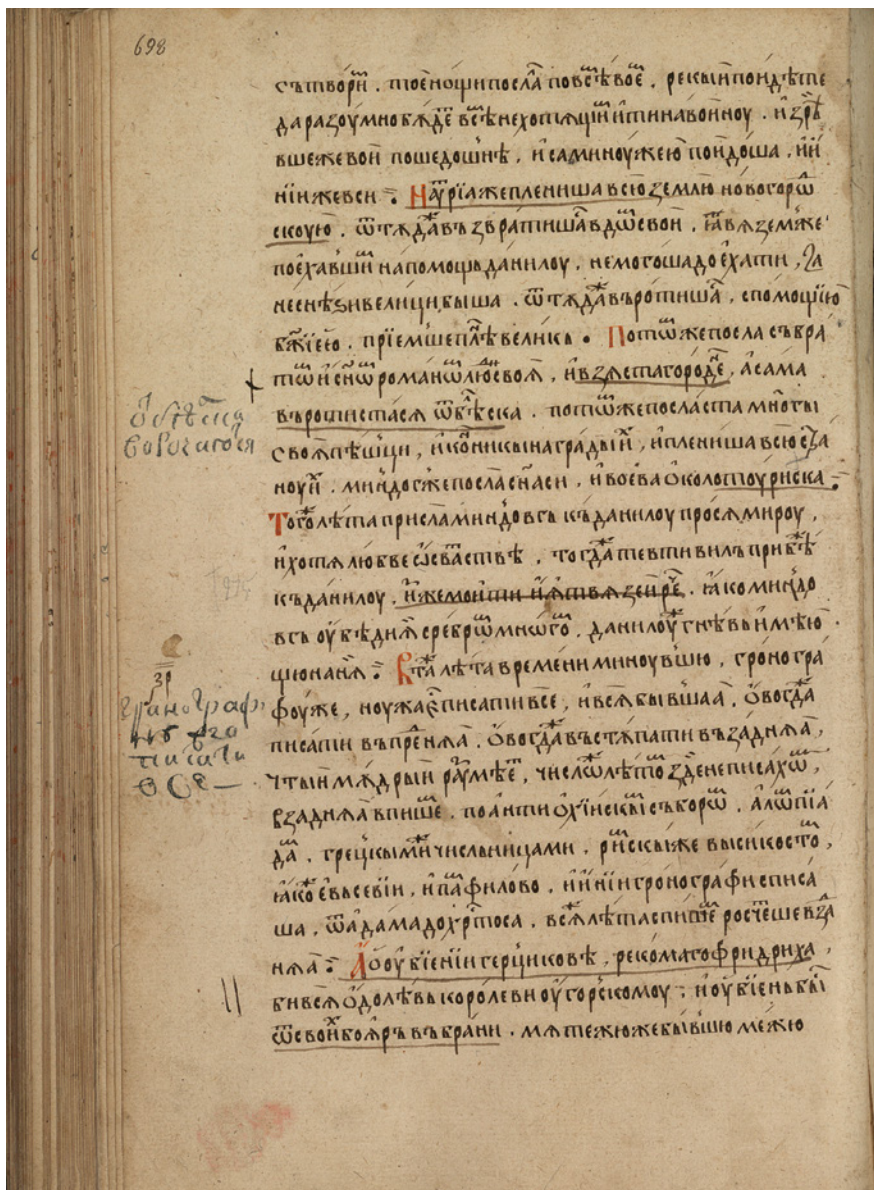 698
сътвори҆ . тоеⷤнощи послⷶ по всѣ воⷨе . рекыи поидѣте
да разоумно бѫдеⷮ всѣ нехотящиⷨ ити на воиноу . и зрⷺ
вше же вои пошедо шнѣ . и сами ноужею поидоша . ини
ніи же вси :~ На юріа же плениша всю землю новогорѡⷣ
скоую . ѿтѫдаⷤ възвратишаⷭ в дѡⷨ свои . кⷩѧзем же
поѣхавшиⷨ на помощь данилоу . немогоша доѣхати , За
не снѣзи велици быша . ѿтѫдаⷤ въротишаⷭ , с помощію
бж҃іею . пріемше плѣⷩ великъ . Потѡⷨже посла съ бра
тѡⷨ и сн҃ѡⷨ романѡⷨ люⷣ своѧ . и взяста городеⷩ . а сама
въротистася ѿ бѣлска . потѡⷨже посласта многы
своѧ пѣшци , и коⷩникы на граⷣы иⷯ , и плениша всю ѿчⷩа
ноу иⷯ . миндогⷤ же посла сн҃а си , и воева около тоуриска :~
Того лѣта присла миндовгъ къ данилоу прося мироу ,
и хотя любве о сваⷮствѣ . тогдаⷤ тевтивилъ прибѣже
къ данилоу . и жемоити и ятвязеи реⷱ . ꙗко миндо
вгъ оубѣди ꙗ сребрѡⷨ многѡ . данилоу гнѣвь имѣю
щю на нꙗ :~ В таⷤ лѣта времени миноувшю . гроногра
фоу же , ноужа еⷭ писати все , и всѧ бывшаа . ѻвогдаⷤ
писати въ преⷣняа . ѻвогдаⷤ въстѫпати въ задняа ,
чтыи мѫдрыи раꙁумѣеⷮ , числѡ лѣтѡⷨ здⷭе не писахѡⷨ ,
в задняа впишеⷨ . по антиохіискыⷨ съборѡⷨ . алѡⷨпіа
даⷨ . грецкыми же численицами . риⷨскы же высикостоⷨ ,
ꙗкоⷤ евьсевіи , и паⷨфилово , и иніи гронографи списа
ша . ѿ адама до хрⷭтоса . всѧⷤ лѣта спишеⷨ росчеⷮше в зⷣа
няа :~ По оубіеніи герциковѣ , рекомаго фридриха ,
бився ѻдолѣвъ королеви оугорскомоу : и оубіень быⷭ
ѿ своиⷯ бояръ въ брани . мятежю же бывшю межю